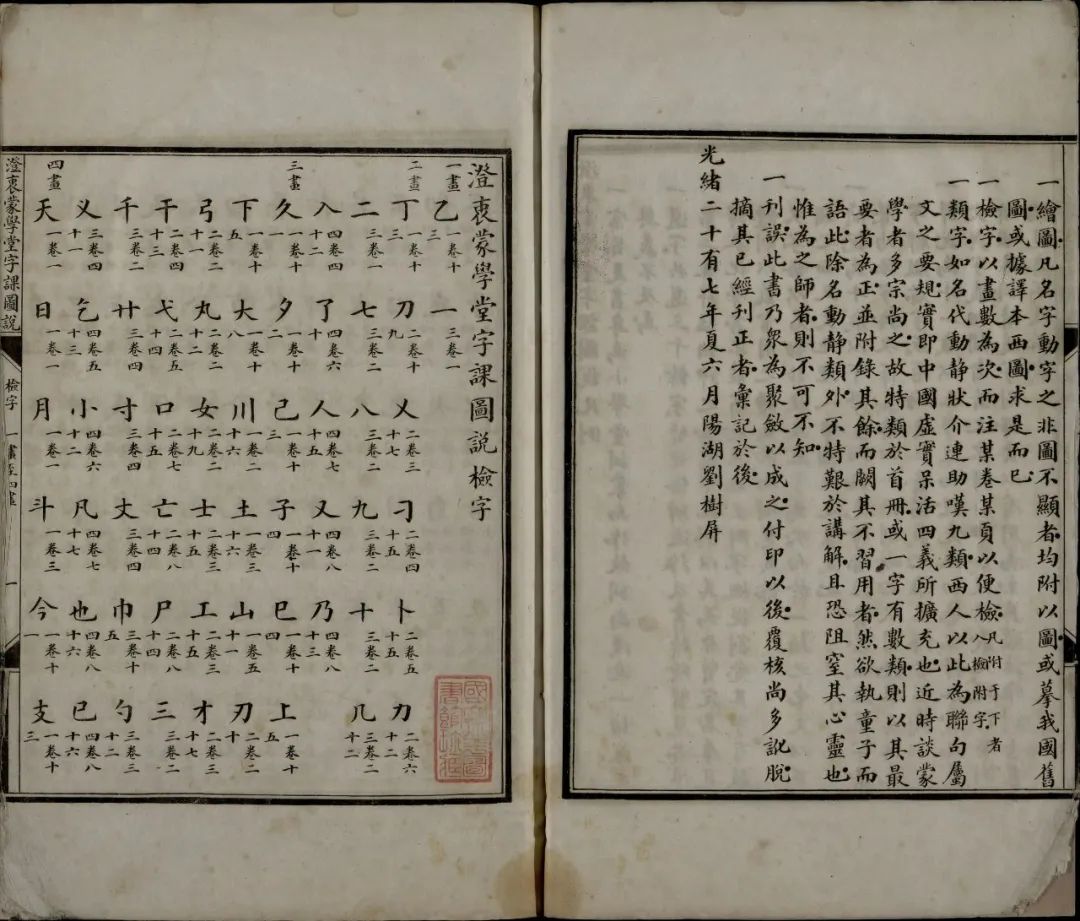 一繪圖凡名字動字之非圖不顯者均附以圖或摹我國舊
圖或據譯本西圖求是而已
一檢字以畫數為次而注某卷某頁以便檢凡附于下者入檢附字
一類字如名代動静狀介連助嘆九類西人以此為聯句屬
文之要規實即中國虛實呆活四義所擴充也近時談蒙
學者多宗尚之故特類於首冊或一字有數類則以其最
要者為正並附錄其餘而闕其不習用者然欲執童子而
語此除名動静類外不特艱於講解且恐阻窒其心靈也
惟為之師者則不可不知
一刊誤此書乃衆為聚斂以成之付印以後覆核尚多訛脫
摘其已經刊正者彙記於後
光緒二十有七年夏六月陽湖劉樹屏
澄衷蒙學堂字課圖說檢字
一畫 乙 一卷十三 一 三卷一
二畫 丁 一卷十三 刀 二卷十九 乂 二卷三十七 刁 二卷四十五 卜 二卷五十五 力 二卷六十二
二 三卷一 七 三卷二 八 三卷二 九 三卷二 十 三卷二 几 三卷二十二
入 四卷四十二 了 四卷六十 人 四卷七十五 又 四卷八十一 乃 四卷八十三
三畫 久 一卷十一 夕 一卷十二 己 一卷十三 子 一卷十四 巳 一卷十四 上 一卷十五
下 一卷十五 大 一卷十八 川 一卷二十六 土 一卷三十六 山 一卷五十一 刃 二卷二十
弓 二卷二十一 丸 二卷二十二 女 二卷二十九 士 二卷三十五 工 二卷三十五 才 二卷三十七
干 二卷四十三 弋 二卷五十四 口 二卷七十五 亡 二卷八十四 尸 二卷八十四 三 三卷一
千 三卷二 廿 三卷四 寸 三卷四 丈 三卷四 巾 三卷十五 勺 三卷三十二
义 三卷四十一 乞 四卷五十三 小 四卷六十二 凡 四卷七十七 也 四卷八十六 已 四卷八十六
四畫 天 一卷一 日 一卷一 月 一卷一 斗 一卷三 今 一卷十一 支 一卷十三
澄衷蒙學堂字課圖說 檢字 一畫至四畫 一